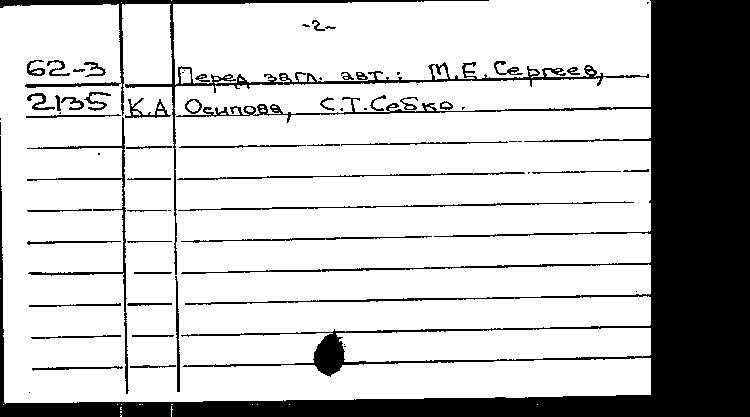 -2-
62-3 Перед загл. авт.: М.Е. Сергеев,
2135 К.А Осипова, С.Т. Себко.